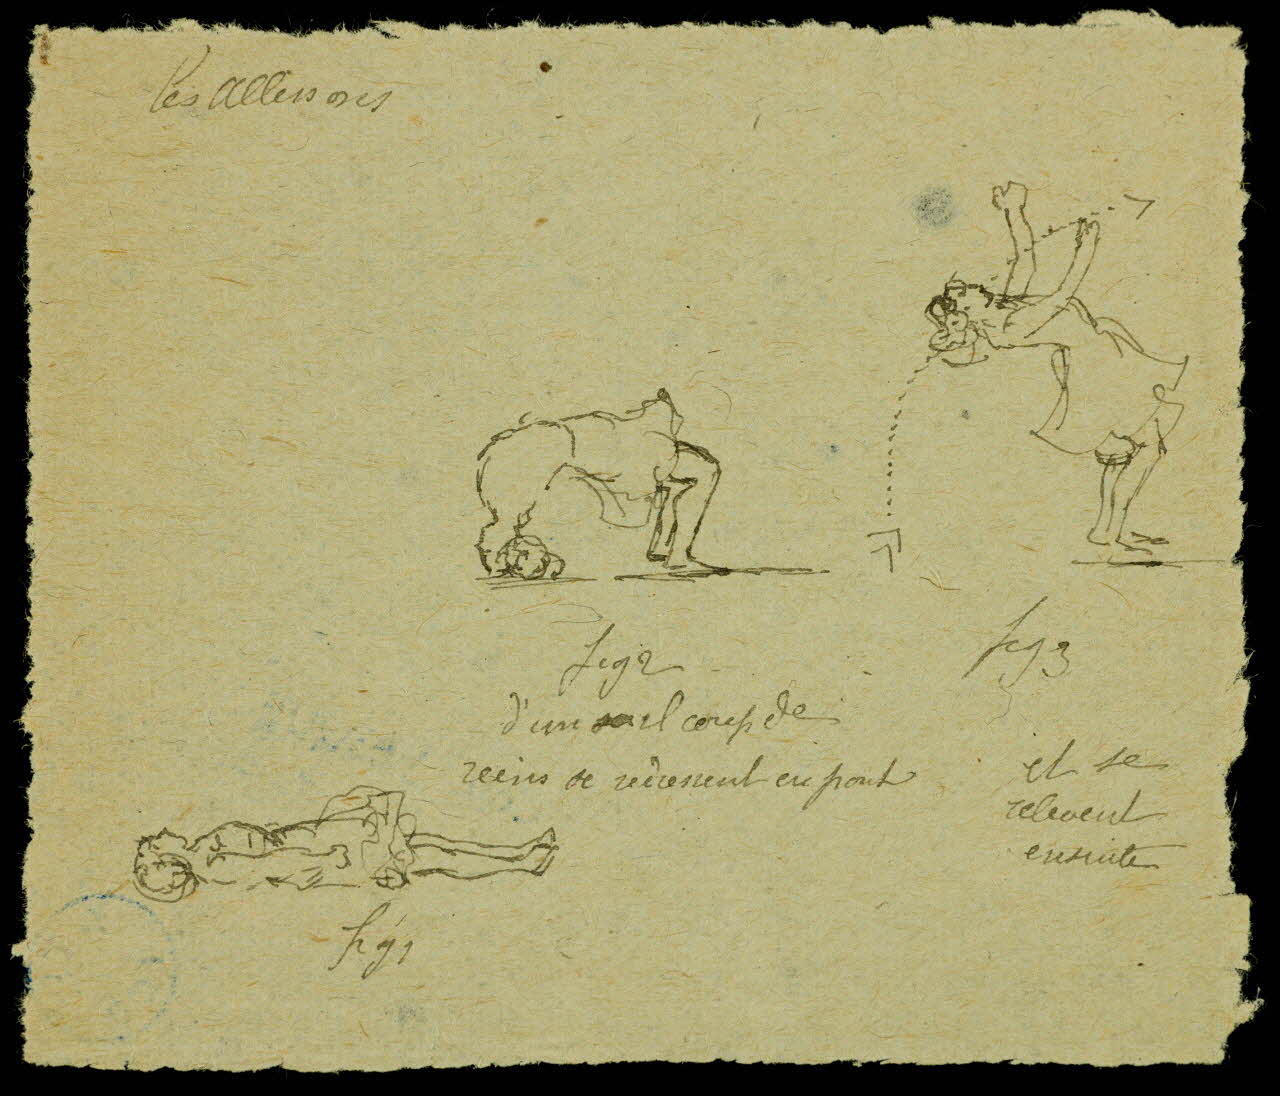 Les Allensores
fig 2
d'un seul coup de
reins se redressent en pont
fig 3
et se
relevent
ensuite
fig 1